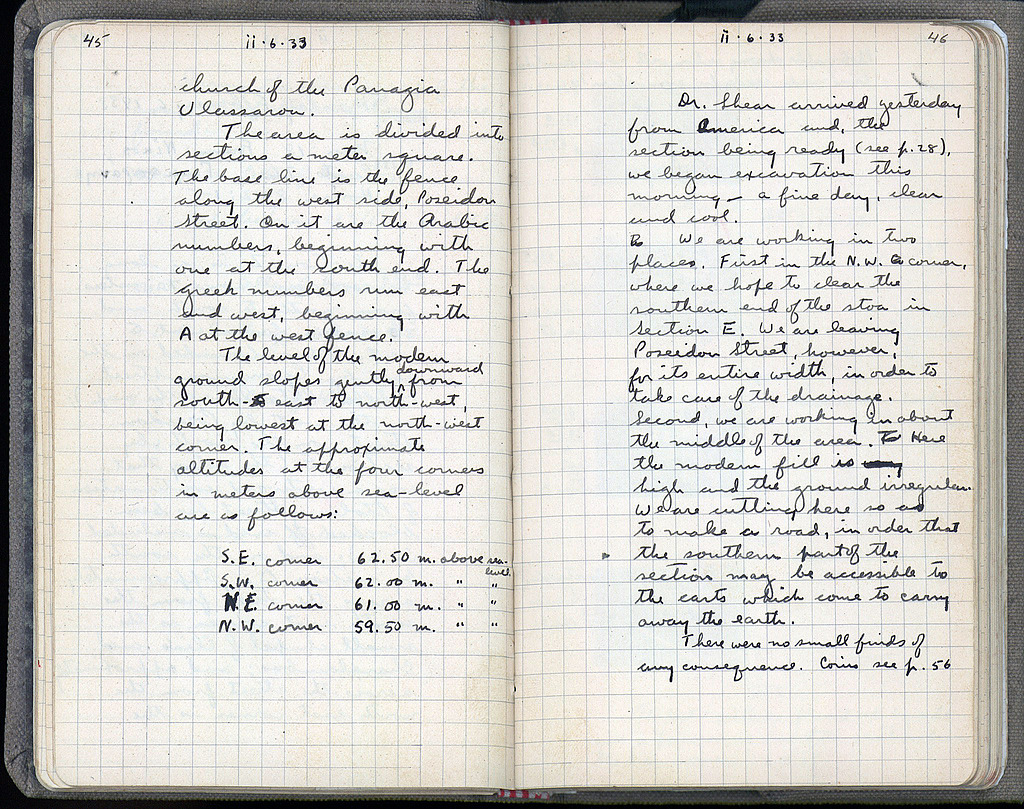 45
ii·6·33
church of the Panagia
Vlassarou.
The area is divided into
sections a meter square.
The base line is the fence
along the west side, Poseidon
Street. On it are the Arabic
numbers, beginning with
one at the south end. The
greek numbers run east
and west, beginning with
A at the west fence.
The level of the modern
ground slopes gently downward from
south-east to north-west,
being lowest at the north-west
corner. The approximate
altitudes at the four corners
in meters above sea-level
are as follows:
S.E. corner 62.50 m. above sea-level.
S.W. corner 62.00 m. " "
N.E. corner 61.00 m. " "
N.W. corner 59.50 m. " "
ii·6·33
46
Dr. Shear arrived yesterday
from America and, the
section being ready (see p.28),
we began excavation this
morning – a fine day, clear
and cool.
We are working in two
places. First in the N.W. corner,
where we hope to clear the
southern end of the stoa in
Section E. We are leaving
Poseidon Street, however,
for its entire width, in order to
take care of the drainage.
Second, we are working in about
the middle of the area. Here
the modern fill is
high and the ground irregular.
We are cutting here so as
to make a road, in order that
the southern part of the
section may be accessible to
the carts which come to carry
away the earth.
There were no small finds of
any consequence. Coins see p. 56